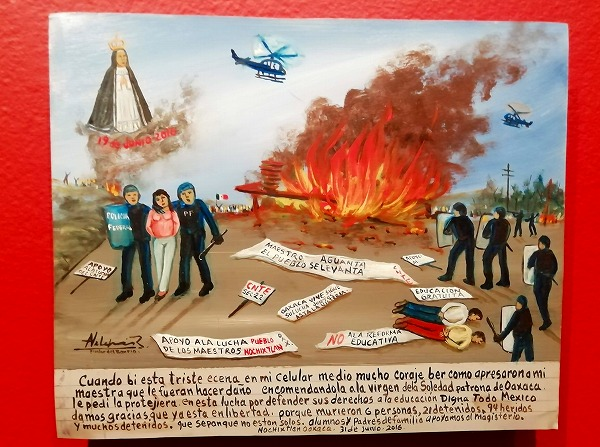 19 JUNIO 2016
POLICIA
FEDERAL
PF
APOYO
MAESTRO AGUANTA
EL PUEBLO SELEVANTA
CNTE
SEC. 22
CNTE
APOYO
EDUCACION
GRATUITA
OAXACA VIVE
APOYO A LA LUCHA PUEBLO
DE LOS MAESTROS NOCHIXTLAN
NO A LA REFORMA
EDUCATIVA
Cuando bi esta triste ecena en mi celular medio mucho coraje ber como apresaron a mi
maestra que le fueran hacer daño encomendandola a la virgen dela Soledad patrona de Oaxaca.
le pedi la protejiera. en esta lucha por defender sus derechos a la educación Digna Todo Mexico
damos gracias que ya esta en libertad. porque murieron 6 personas, 21 detenidos, 94 heridos
y muchos detenidos. que sepan que no estan solos. alumnos y Padres de familia apoyamos al magisterio.
NOCHIXTLAN OAXACA. 31 de JUNIO 2016